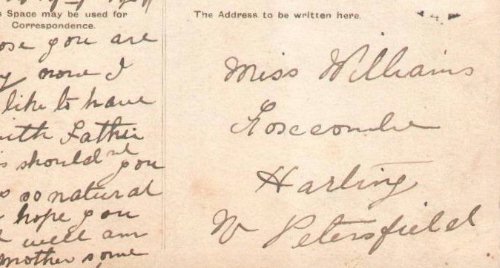 s Space may be used for
Correspondence.
ose you are
y now I
like to have
with Father
s should you
so natural
hope you
well am
mother some
The Address to be written here.
Miss Williams
Harting
Nr Petersfield